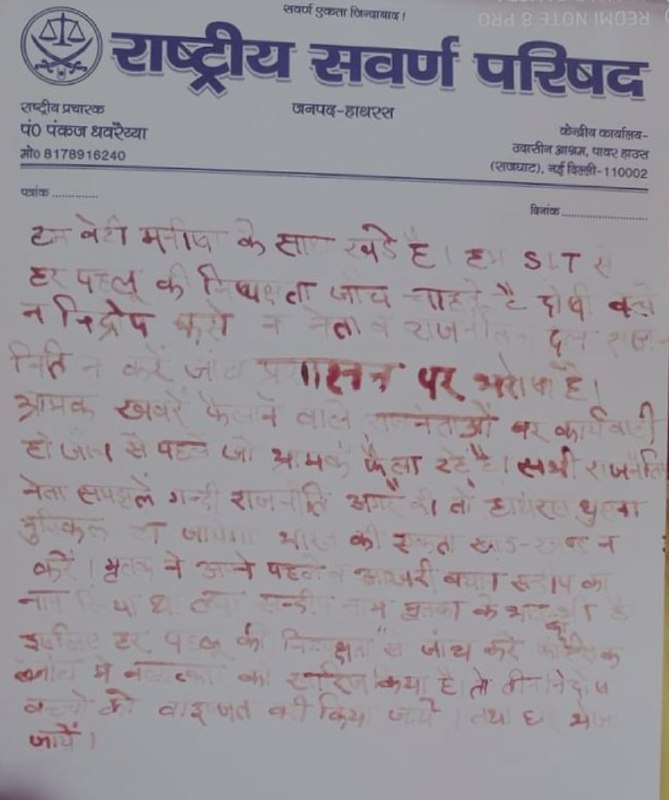 सवर्ण एकता जिन्दाबाद!
REDMI NOTE 8 PRO
राष्ट्रीय सवर्ण परिषद
राष्ट्रीय प्रचारक
जनपद-हाथरस
पं0 पंकज धवरैय्या
मो0 8178916240
केन्द्रीय कार्यालय-
उदासीन आश्रम, पावर हाउस
(राजघाट), नई दिल्ली-110002
पत्रांक ............
दिनांक ....................
हम बेटी मनीषा के साथ खडे है। हम SIT से
हर पहलू की निष्पक्षता जांच चाहते है दोषी बचे
न निर्दोष फसे न नेता व राजनीतिक दल राज-
निति न करें जांच प्रशासन पर भरोषा है।
भ्रामक खबरें फैलाने वाले राजनेताओं पर कार्यवाही
हो जांच से पहले जो भ्रामकें फैला रहे है। सभी राजनैति
नेता समझलें गन्दी राजनीति अगर की तो हाथरस घुसना
मुश्किल हो जायेगा भारत की एकता खण्ड-खण्ड न
करें। मृतका ने अपने पहले व आखरी बयान का
नाम था तथा नाम मृतका के
इसलिए हर पहलू की निष्पक्षता से जांच करे
में बलात्कार को खारिज किया है। तो तीन निर्दोष
बच्चों को बाइज्जत बरी किया जाये। तथा घर भेजा
जायें।